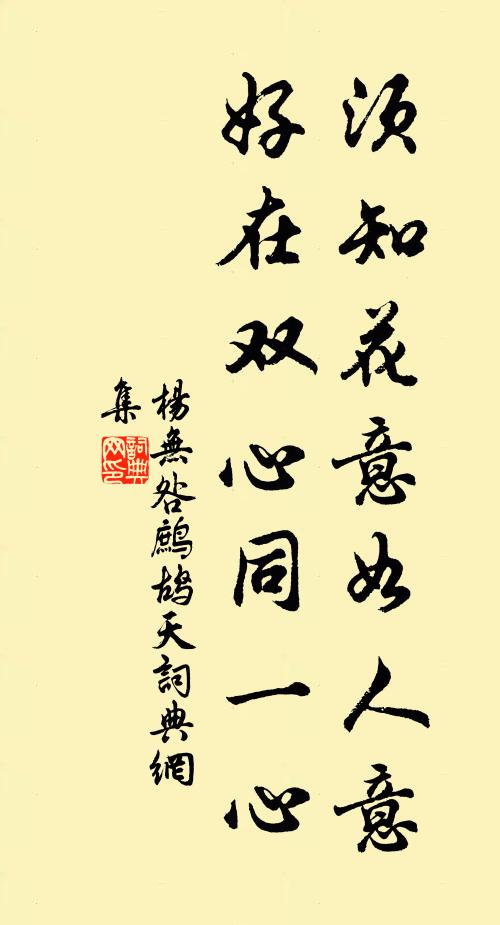 须知花意如人意
好在双心同一心
楊無咎鷓鴣天詞典網
集
詞典
网印